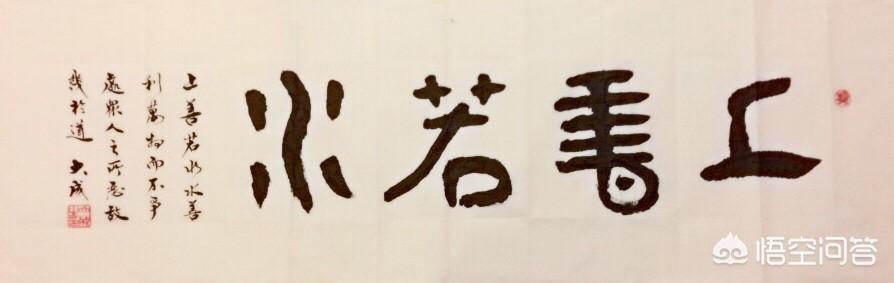 上書若水
上善若水水善
利萬物而不爭
處眾人之所惡故
幾於道 大成
悟空问答